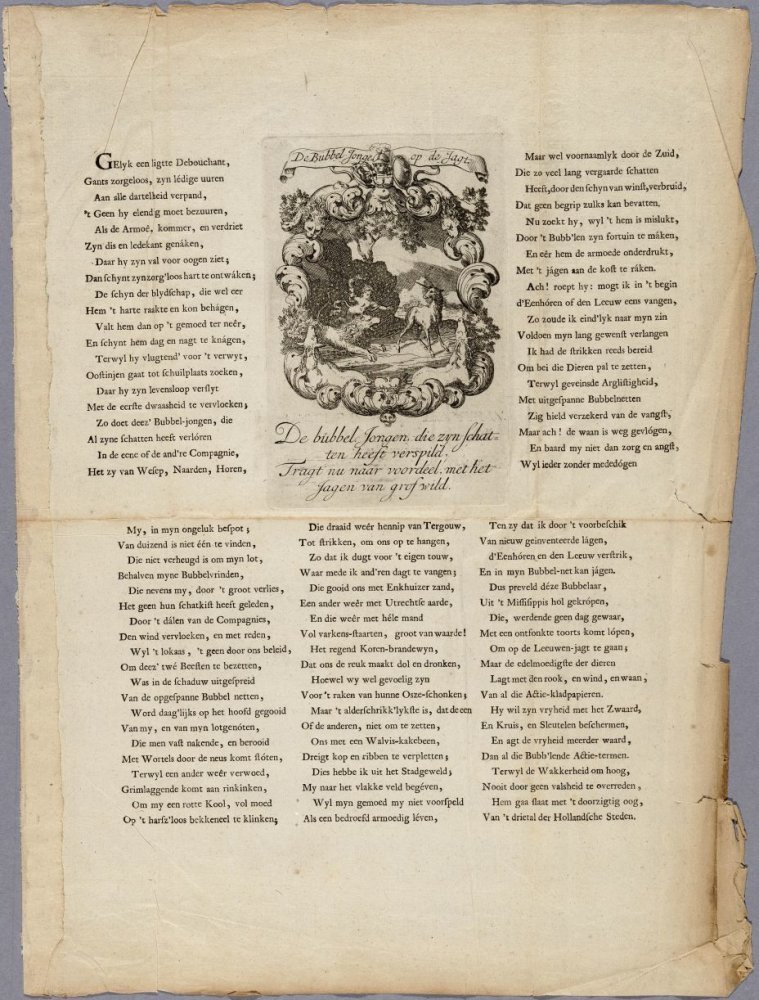 De Bubbel Jongen op de Jagt.
GElyk een ligtte Debouchant,
Gants zorgeloos, zyn lédige uuren
Aan alle dartelheid verpand,
't Geen hy elendig moet bezuuren,
Als de Armoé, kommer, en verdriet
Zyn dis en ledekant genáken,
Daar hy zyn val voor oogen ziet;
Dan schynt zyn zorg'loos hart te ontwáken;
De schyn der blydschap, die wel eer
Hem 't harte raakte en kon behágen,
Valt hem dan op 't gemoed ter neêr,
En schynt hem dag en nagt te knágen,
Terwyl hy vlugtend' voor 't verwyt,
Oostinjen gaat tot schuilplaats zoeken,
Daar hy zyn levensloop verslyt
Met de eerste dwaasheid te vervloeken;
Zo doet deez' Bubbel-jongen, die
Al zyne schatten heeft verlóren
In de eene of de and're Compagnie,
Het zy van Wesep, Naarden, Horen,
De bubbel Jongen, die zyn schat-
ten heeft verspild,
Tragt nu náár voordeel, met het
Jagen van grof wild.
Maar wel voornaamlyk door de Zuid,
Die zo veel lang vergaarde schatten
Heeft, door den schyn van winst, verbruid,
Dat geen begrip zulks kan bevatten.
Nu zoekt hy, wyl 't hem is mislukt,
Door 't Bubb'len zyn fortuin te máken,
En eêr hem de armoede onderdrukt,
Met 't jágen aan de kost te ráken.
Ach! roept hy: mogt ik in 't begin
d'Eenhóren of den Leeuw eens vangen,
Zo zoude ik eind'lyk naar myn zin
Voldoen myn lang gewenst verlangen
Ik had de strikken reeds bereid
Om bei die Dieren pal te zetten,
Terwyl geveinsde Arglistigheid,
Met uitgespanne Bubbelnetten
Zig hield verzekerd van de vangst,
Maar ach! de waan is weg gevlógen,
En baard my niet dan zorg en angst,
Wyl ieder zonder mededógen
My, in myn ongeluk bespot;
Van duizend is niet één te vinden,
Die niet verheugd is om myn lot,
Behalven myne Bubbelvrinden,
Die nevens my, door 't groot verlies,
Het geen hun schatkist heeft geleden,
Door 't dálen van de Compagnies,
Den wind vervloeken, en met reden,
Wyl 't lokaas, 't geen door ons beleid,
Om deez' twé Beesten te bezetten,
Was in de schaduw uitgespreid
Van de opgespanne Bubbel netten,
Word daag'lijks op het hoofd gegooid
Van my, en van myn lotgenóten,
Die men vast nakende, en berooid
Met Wortels door de neus komt stóten,
Terwyl een ander weêr verwoed,
Grimlaggende komt aan rinkinken,
Om my een rotte Kool, vol moed
Op 't harsz'loos bekkeneel te klinken;
Die draaid weêr hennip van Tergouw,
Tot strikken, om ons op te hangen,
Zo dat ik dugt voor 't eigen touw,
Waar mede ik and'ren dagt te vangen;
Die gooid ons met Enkhuizer zand,
Een ander weêr met Utrechtse aarde,
En die weêr met héle mand
Vol varkens-staarten, groot van waarde!
Het regend Koren-brandewyn,
Dat ons de reuk maakt dol en dronken,
Hoewel wy wel gevoelig zyn
Voor 't raken van hunne Osze-schonken;
Maar 't alderschrikk'lykste is, dat de een
Of de anderen, niet om te zetten,
Ons met een Walvis-kakebeen,
Dreigt kop en ribben te verpletten;
Dies hebbe ik uit het Stadgeweld;
My naar het vlakke veld begéven,
Wyl myn gemoed my niet voorspeld
Als een bedroefd armoedig léven,
Ten zy dat ik door 't voorbeschik
Van nieuw geinventeerde lágen,
d'Eenhóren en den Leeuw verstrik,
En in myn Bubbel-net kan jágen.
Dus preveld déze Bubbelaar,
Uit 't Missisippis hol gekrópen,
Die, werdende geen dag gewaar,
Met een ontfonkte toorts komt lópen,
Om op de Leeuwen-jagt te gaan;
Maar de edelmoedigste der dieren
Lagt met den rook, en wind, en waan,
Van al die Actie-kladpapieren.
Hy wil zyn vryheid met het Zwaard,
En Kruis, en Sleutelen beschermen,
En agt de vryheid meerder waard,
Dan al die Bubb'lende Actie-termen.
Terwyl de Wakkerheid om hoog,
Nooit door geen valsheid te overreden,
Hem gaa slaat met 't doorzigtig oog,
Van 't drietal der Hollandsche Steden.